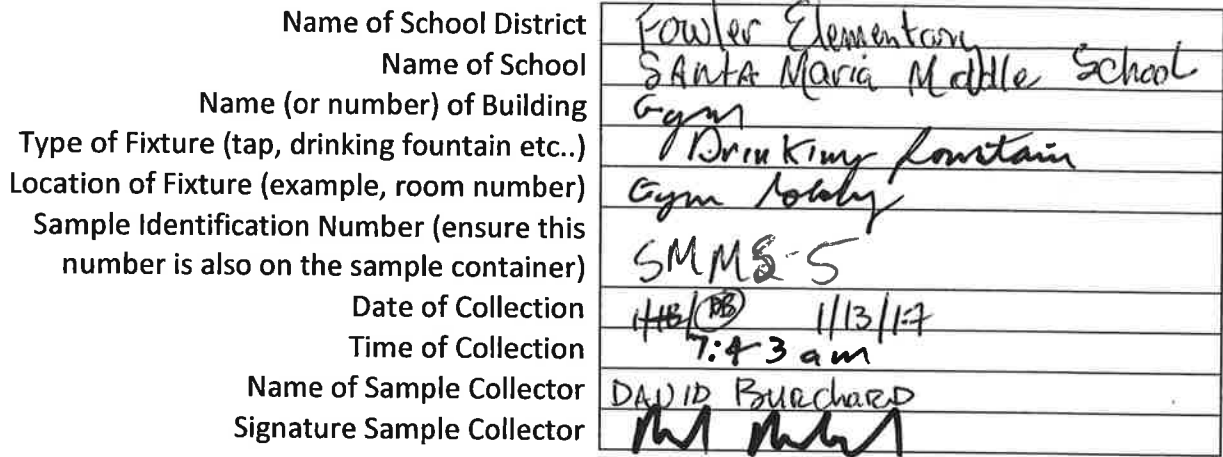 Name of School District Fowler Elementary
Name of School SANTA Maria Middle School
Name (or number) of Building Gym
Type of Fixture (tap, drinking fountain etc..) Drinking fountain
Location of Fixture (example, room number) Gym lobby
Sample Identification Number (ensure this
number is also on the sample container) SMMS-5
Date of Collection DB 1/13/17
Time of Collection 7:43 am
Name of Sample Collector DAVID BURChARD
Signature Sample Collector